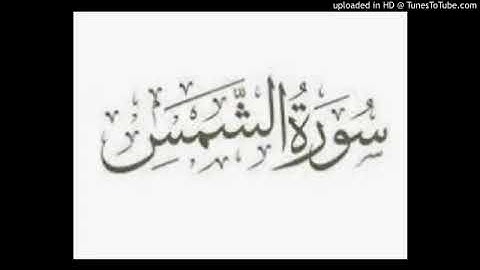 uploaded in HD @ TunesToTube.com
سُورَةُ الشَّمَسِ